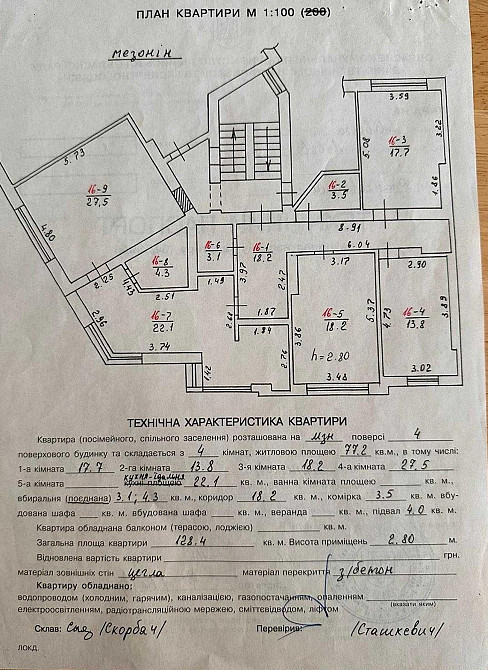 ПЛАН КВАРТИРИ М 1:100 (200)
мезонін
3.59
5.73
16-9
27,5
4.80
5.08
16-3
17.7
3.22
1.86
16-2
3.5
8.91
16-8
4.3
16-6
3.1
16-1
18.2
6.04
2.125
4.43
2.51
1.49
3.97
2.47
3.17
2.90
2.96
16-7
22.1
2.68
1.87
3.86
16-5
18.2
5.37
4.73
16-4
13.8
3.89
3.74
1.94
h=2.80
1.42
2.76
3.48
3.02
ТЕХНІЧНА ХАРАКТЕРИСТИКА КВАРТИРИ
Квартира (посімейного, спільного заселення) розташована на мзн поверсі 4
поверхового будинку та складається з 4 кімнат, житловою площею 77.2 кв.м., в тому числі:
1-а кімната 17.7 2-га кімната 13.8 3-я кімната 18.2 4-а кімната 27.5
5-а кімната кв. м., кухня-їдальня кухні площею 22.1 кв. м., ванна кімната площею кв. м.,
вбиральня (поєднана) 3.1; 4.3 кв. м., коридор 18.2 кв. м., комірка 3.5 кв. м. вбу-
дована шафа кв. м. вбудована шафа кв. м., веранда кв. м., підвал 4.0 кв. м.
Квартира обладнана балконом (терасою, лоджією) кв. м.
Загальна площа квартири 128.4 кв. м. Висота приміщень 2.80 м.
Відновлена вартість квартири грн.
матеріал зовнішніх стін цегла матеріал перекриття з/бетон
Квартиру обладнано:
водопроводом (холодним, гарячим), каналізацією, газопостачанням, опаленням
(вказати яким)
електроосвітленням, радіотрансляційною мережею, сміттєвідводом, ліфтом
Склав: /Скорбач/ Перевірив: /Сташкевич/
локд.